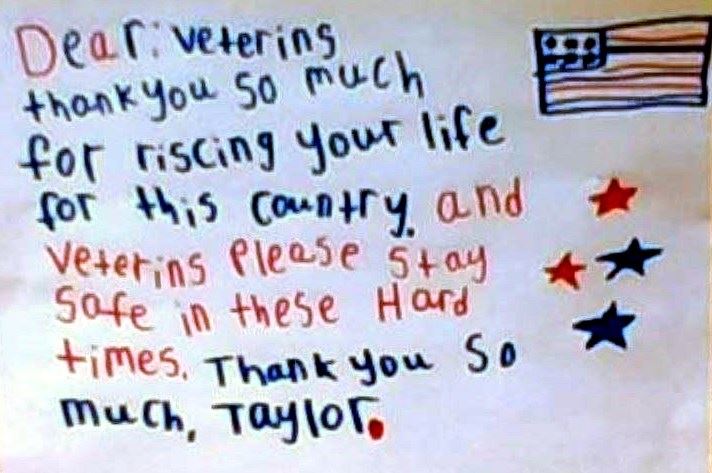 Dear: veterins
thank you so much
for riscing your life
for this country. and
veterins Please stay
safe in these Hard
times. Thank you so
much, Taylor.